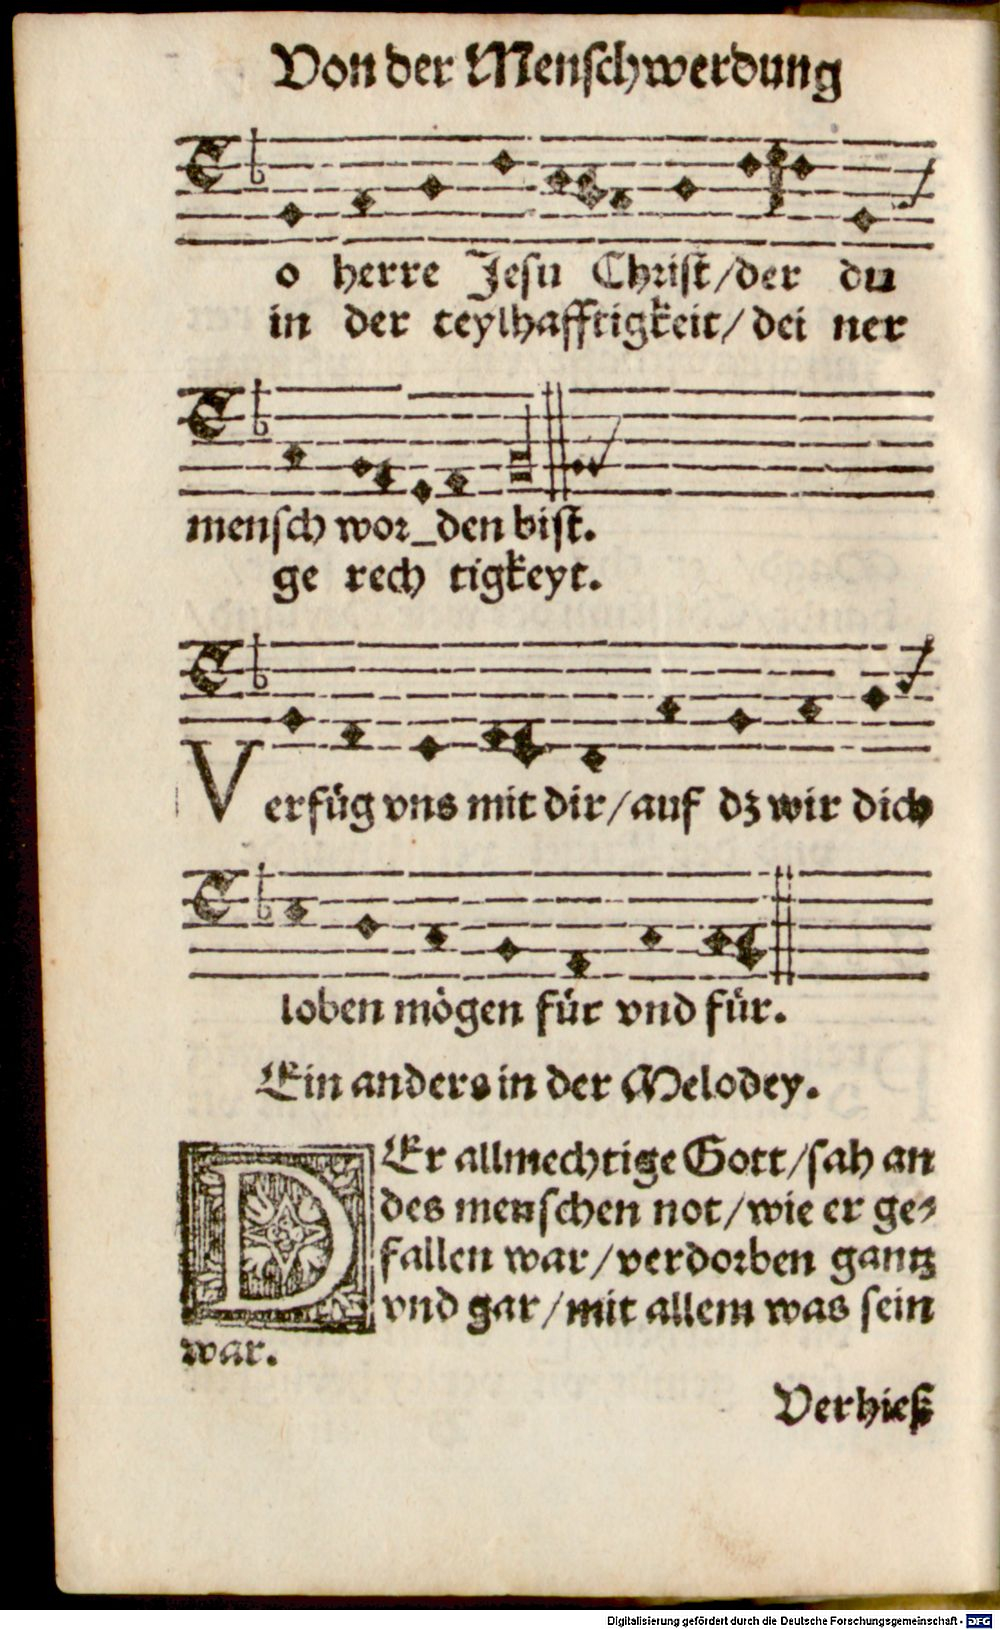 Von der Menschwerdung
o herre Jesu Christ/der du
in der teylhafftigkeit/dei ner
mensch wor_den bist.
ge rech tigkeyt.
Verfüg vns mit dir/auf dz wir dich
loben mögen für vnd für.
Ein anders in der Melodey.
DEr allmechtige Gott/sah an
des menschen not/wie er ge⸗
fallen war/verdorben gantz
vnd gar/mit allem was sein
war.
Verhieß
Digitalisierung gefördert durch die Deutsche Forschungsgemeinschaft - DFG